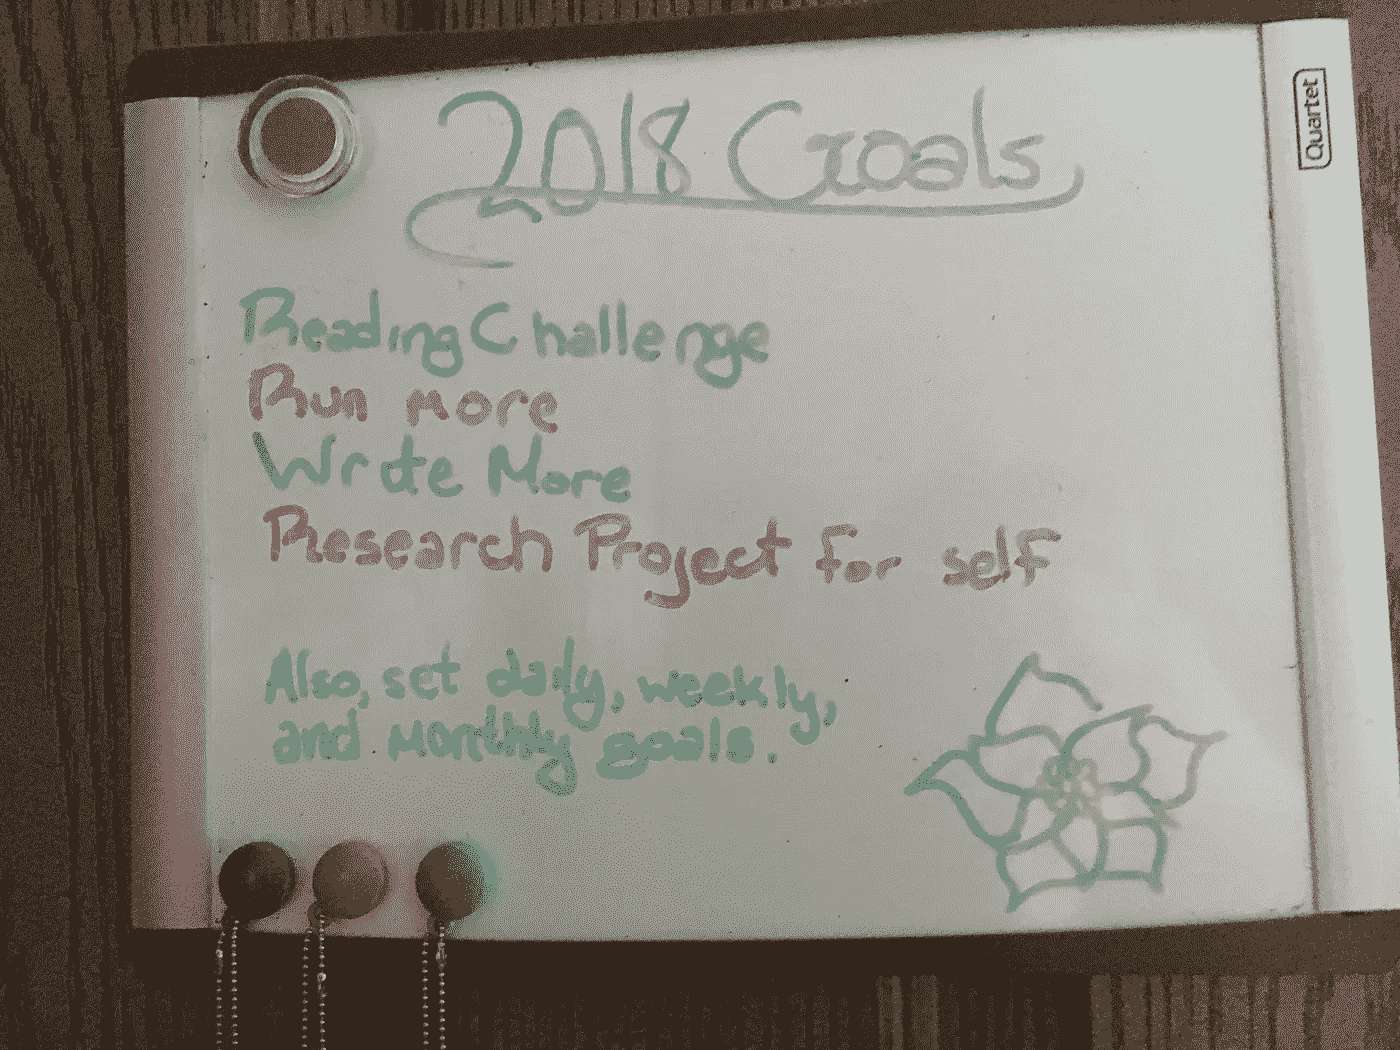 2018 Goals
Quartet
Reading Challenge
Run More
Write More
Research Project for self
Also, set daily, weekly,
and Monthly goals.